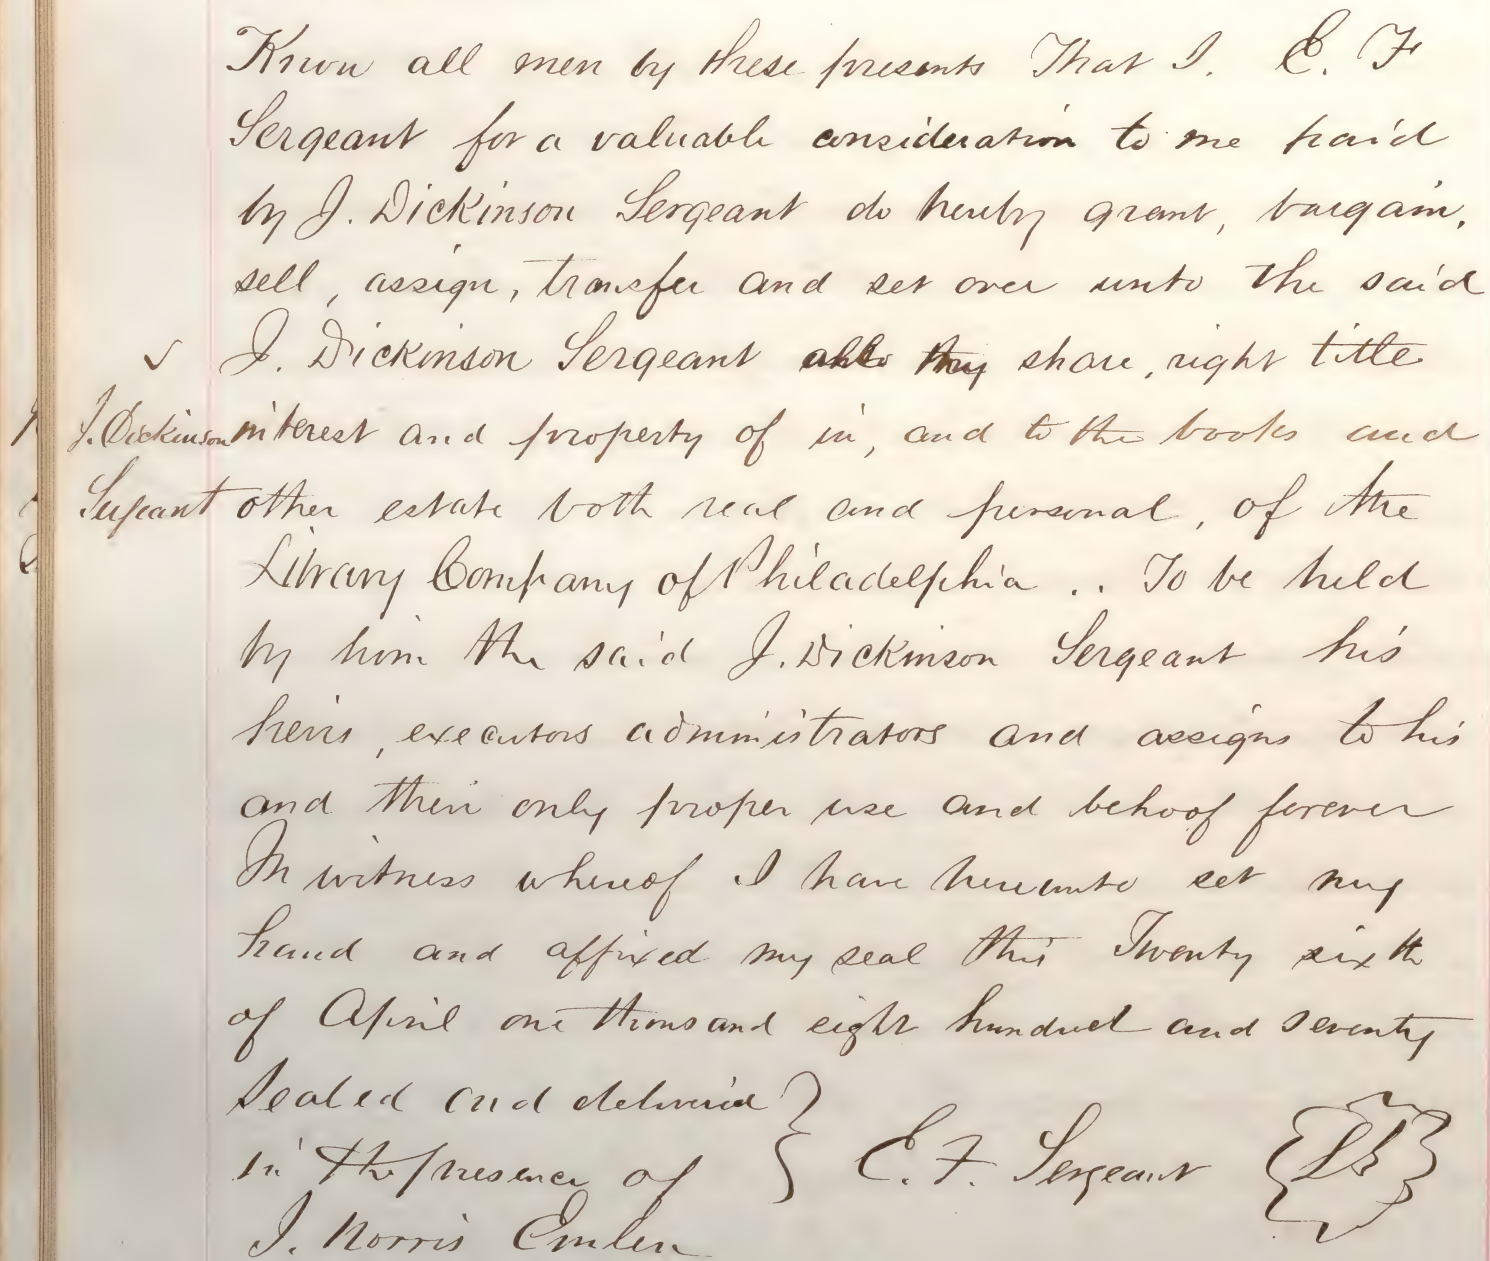 Know all men by these presents That I. E. F
Sergeant for a valuable consideration to me paid
by J. Dickinson Sergeant do hereby grant, bargain,
sell, assign, transfer and set over unto the said
✓ J. Dickinson Sergeant all my share, right title
J. Dickinson interest and property of in, and to the books and
Sergeant other estate both real and personal, of the
Library Company of Philadelphia .. To be held
by him the said J. Dickinson Sergeant his
heirs, executors administrators and assigns to his
and their only proper use and behoof forever
In witness whereof I have hereunto set my
hand and affixed my seal this Twenty sixth
of April one thousand eight hundred and seventy
Sealed and delivered }
in the presence of } E. F. Sergeant {LS}
J. Norris Emlen